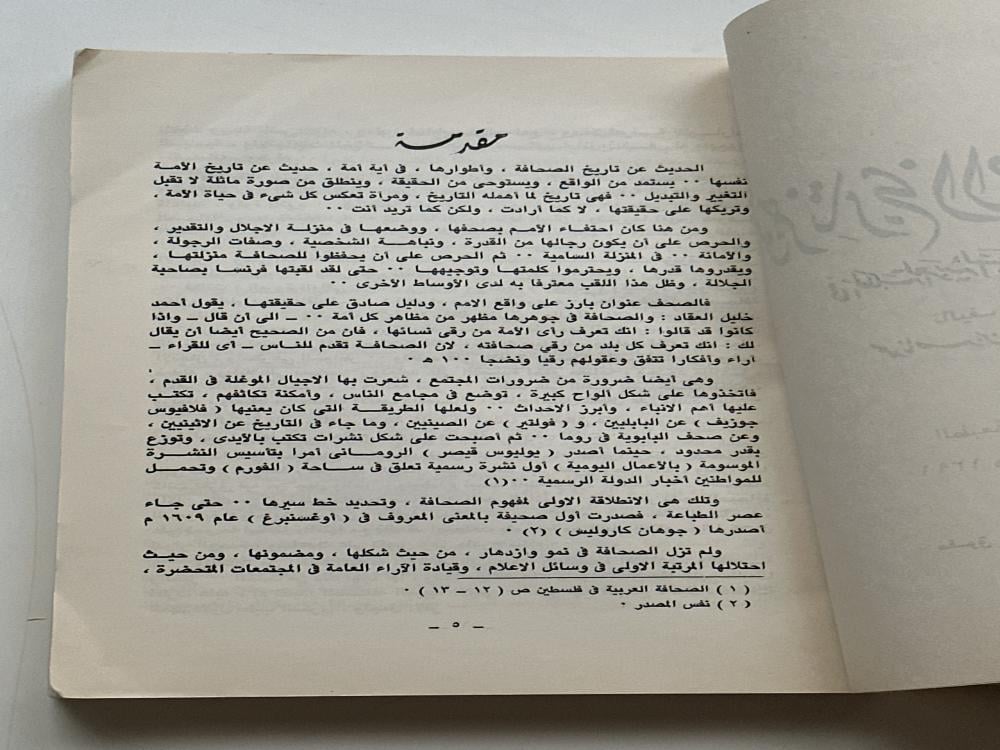 مقدمة
الحديث عن تاريخ الصحافة ، وأطوارها ، فى أية أمة ، حديث عن تاريخ الأمة
نفسها ٠٠ يستمد من الواقع ، ويستوحى من الحقيقة ، وينطلق من صورة ماثلة لا تقبل
التغيير والتبديل ٠٠ فهى تاريخ لما أهمله التاريخ ، ومرآة تعكس كل شىء فى حياة الأمة ،
وتريكها على حقيقتها ، لا كما أرادت ، ولكن كما تريد أنت ٠٠
ومن هنا كان احتفاء الأمم بصحفها ، ووضعها فى منزلة الاجلال والتقدير ،
والحرص على أن يكون رجالها من القدرة ، ونباهة الشخصية ، وصفات الرجولة ،
والأمانة ٠٠ فى المنزلة السامية ٠٠ ثم الحرص على أن يحفظوا للصحافة منزلتها ،
ويقدروها قدرها ، ويحترموا كلمتها وتوجيهها ٠٠ حتى لقد لقبتها فرنسا بصاحبة
الجلالة ، وظل هذا اللقب معترفا به لدى الأوساط الأخرى ٠٠
فالصحف عنوان بارز على واقع الامم ، ودليل صادق على حقيقتها ، يقول أحمد
خليل العقاد : والصحافة فى جوهرها مظهر من مظاهر كل أمة ٠٠ ــ الى أن قال ــ واذا
كانوا قد قالوا : انك تعرف رأى الأمة من رقى نسائها ، فان من الصحيح أيضا أن يقال
لك : انك تعرف كل بلد من رقي صحافته ، لان الصحافة تقدم للناس ــ أى للقراء ــ
آراء وأفكارا تتفق وعقولهم رقيا ونضجا ١٠٠ هـ ٠
وهى أيضا ضرورة من ضرورات المجتمع ، شعرت بها الاجيال الموغلة فى القدم ،
فاتخذوها على شكل ألواح كبيرة ، توضع في مجامع الناس ، وأمكنة تكاثفهم ، تكتب
عليها أهم الانباء ، وأبرز الاحداث ٠٠ ولعلها الطريقة التى كان يعنيها ( فلافيوس
جوزيف ) عن البابليين ، و ( فولتير ) عن الصينيين ، وما جاء فى التاريخ عن الاثينيين ،
وعن صحف البابوية في روما ٠٠ ثم أصبحت على شكل نشرات تكتب بالأيدى ، وتوزع
بقدر محدود ، حينما أصدر ( يوليوس قيصر ) الرومانى أمرا بتأسيس النشرة
الموسومة ( بالأعمال اليومية ) أول نشرة رسمية تعلق في ساحة ( الفورم ) وتحمل
للمواطنين أخبار الدولة الرسمية ٠٠(١)
وتلك هى الانطلاقة الاولى لمفهوم الصحافة ، وتحديد خط سيرها ٠٠ حتى جاء
عصر الطباعة ، فصدرت أول صحيفة بالمعنى المعروف في ( أوغسنبرغ ) عام ١٦٠٩ م
أصدرها ( جوهان كاروليش ) (٢) ٠
ولم تزل الصحافة فى نمو وازدهار ، من حيث شكلها ، ومضمونها ، ومن حيث
احتلالها المرتبة الاولى فى وسائل الاعلام ، وقيادة الآراء العامة فى المجتمعات المتحضرة ،
( ١ ) الصحافة العربية فى فلسطين ص ( ١٢ ــ ١٣ ) ٠
( ٢ ) نفس المصدر ٠
ــ ٥ ــ